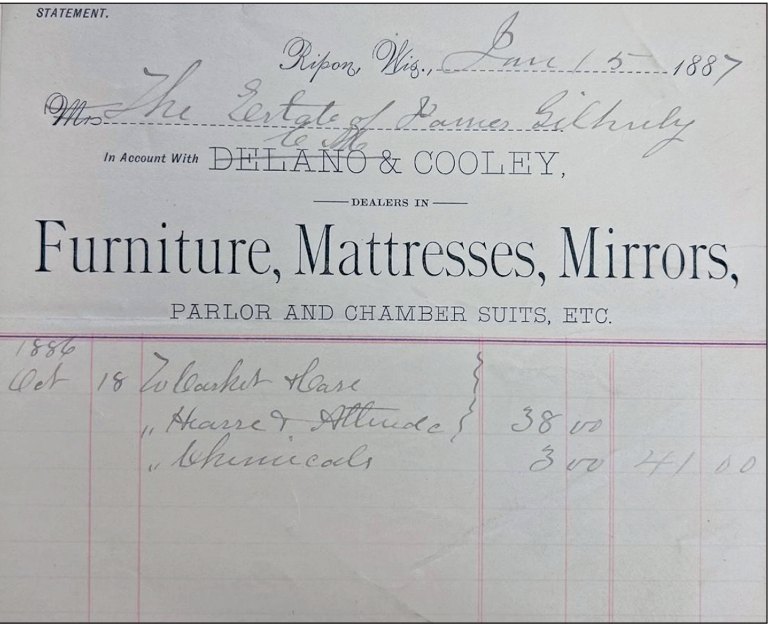 STATEMENT.
Ripon, Wis., Jan 15 1887
M The Estate of James
C M
In Account With DELANO & COOLEY,
DEALERS IN
Furniture, Mattresses, Mirrors,
PARLOR AND CHAMBER SUITS, ETC.
1886
Oct 18 To Casket & Case
" Hearse & Attendc 38 00
" Chemicals 3 00 41 00